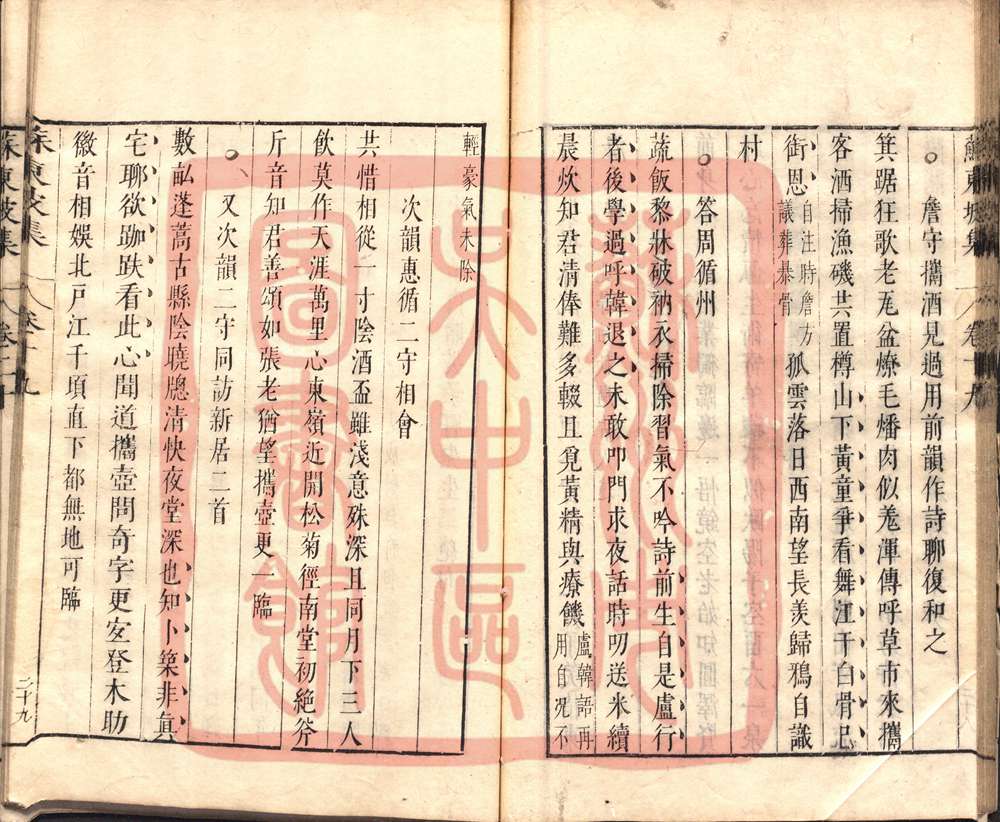 蘇東坡集 卷十九
詹守攜酒見過用前韻作詩聊復和之
箕踞狂歌老瓦盆燎毛燔肉似羗渾傳呼草市來攜
客洒掃漁磯共置樽山下黃童爭看舞江干白骨已
銜恩自注時詹方議葬暴骨孤雲落日西南望長羨歸鴉自識
村
答周循州
蔬飯黎牀破衲衣掃除習氣不吟詩前生自是盧行
者後學過呼韓退之未敢叩門求夜話時叨送米續
晨炊知君清俸難多輟且覓黃精與療饑盧韓語再用自况不
輕豪氣未除
次韻惠循二守相會
共惜相從一寸陰酒盃雖淺意殊深且同月下三人
飲莫作天涯萬里心東嶺近開松菊徑南堂初絶斧
斤音知君善頌如張老猶望攜壺更一臨
又次韻二守同訪新居二首
數畝蓬蒿古縣陰曉牕清快夜堂深也知卜築非真
宅聊欲跏趺看此心聞道攜壺問奇字更安登木助
徽音相娛北戸江千頃直下都無地可臨
二十九
蘇東坡集 卷十九
蘇州市吳中區圖書館